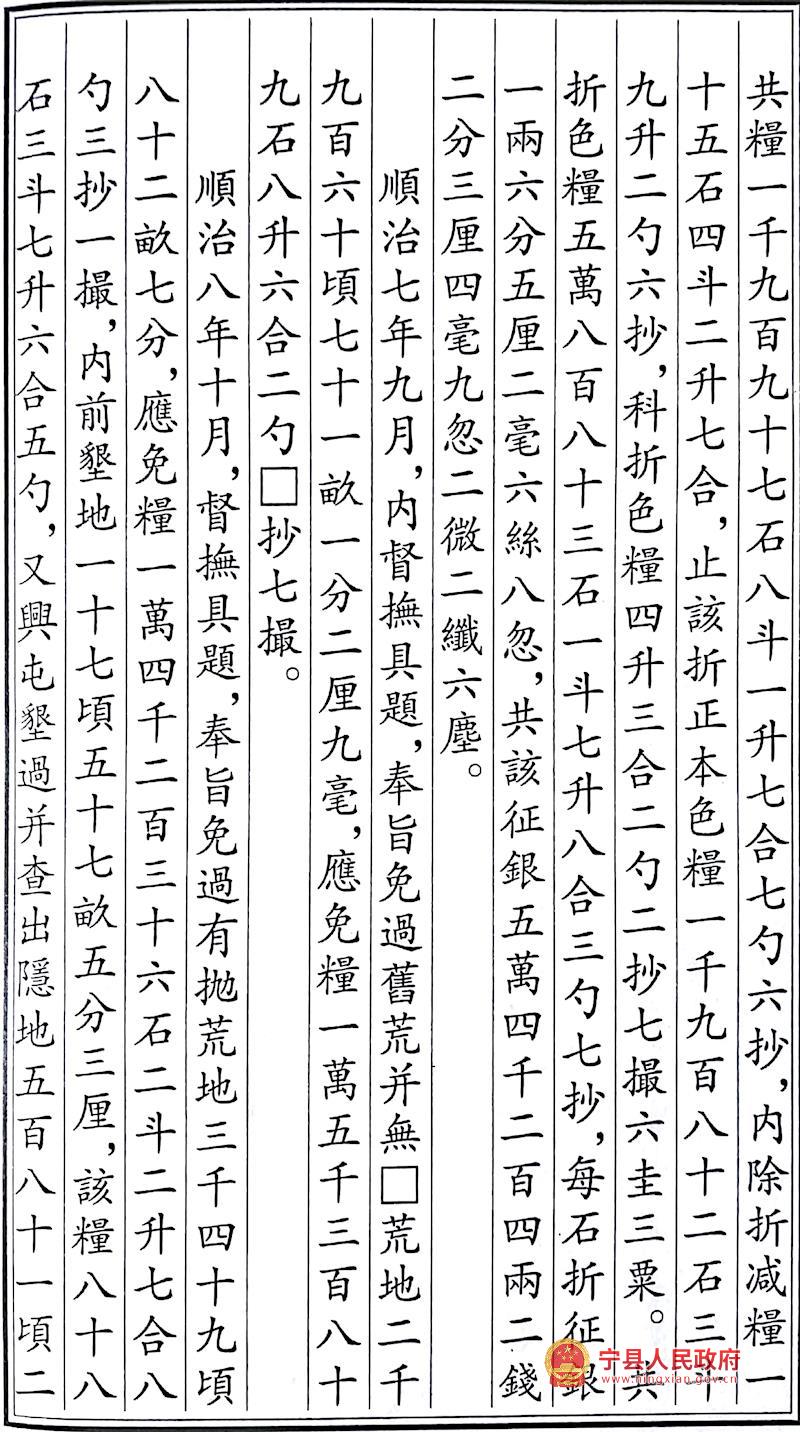 共糧一千九百九十七石八斗一升七合七勺六抄，内除折减糧一
十五石四斗二升七合，止該折正本色糧一千九百八十二石三斗
九升二勺六抄，科折色糧四升三合二勺二抄七撮六圭三粟。共
折色糧五萬八百八十三石一斗七升八合三勺七抄，每石折征銀
一兩六分五厘二毫六絲八忽，共該征銀五萬四千二百四兩二錢
二分三厘四毫九忽二微二纖六塵。
順治七年九月，内督撫具題，奉旨免過舊荒并無□荒地二千
九百六十頃七十一畝一分二厘九毫，應免糧一萬五千三百八十
九石八升六合二勺□抄七撮。
順治八年十月，督撫具題，奉旨免過有抛荒地三千四十九頃
八十二畝七分，應免糧一萬四千二百三十六石二斗二升七合八
勺三抄一撮，内前墾地一十七頃五十七畝五分三厘，該糧八十八
石三斗七升六合五勺，又興屯墾過并查出隱地五百八十一頃二
宁县人民政府
www.ningxian.gov.cn